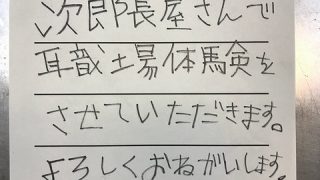 次郎長屋さんで
耳哉土昜体馬険を
させていただきます。
よろしくおねがいします。